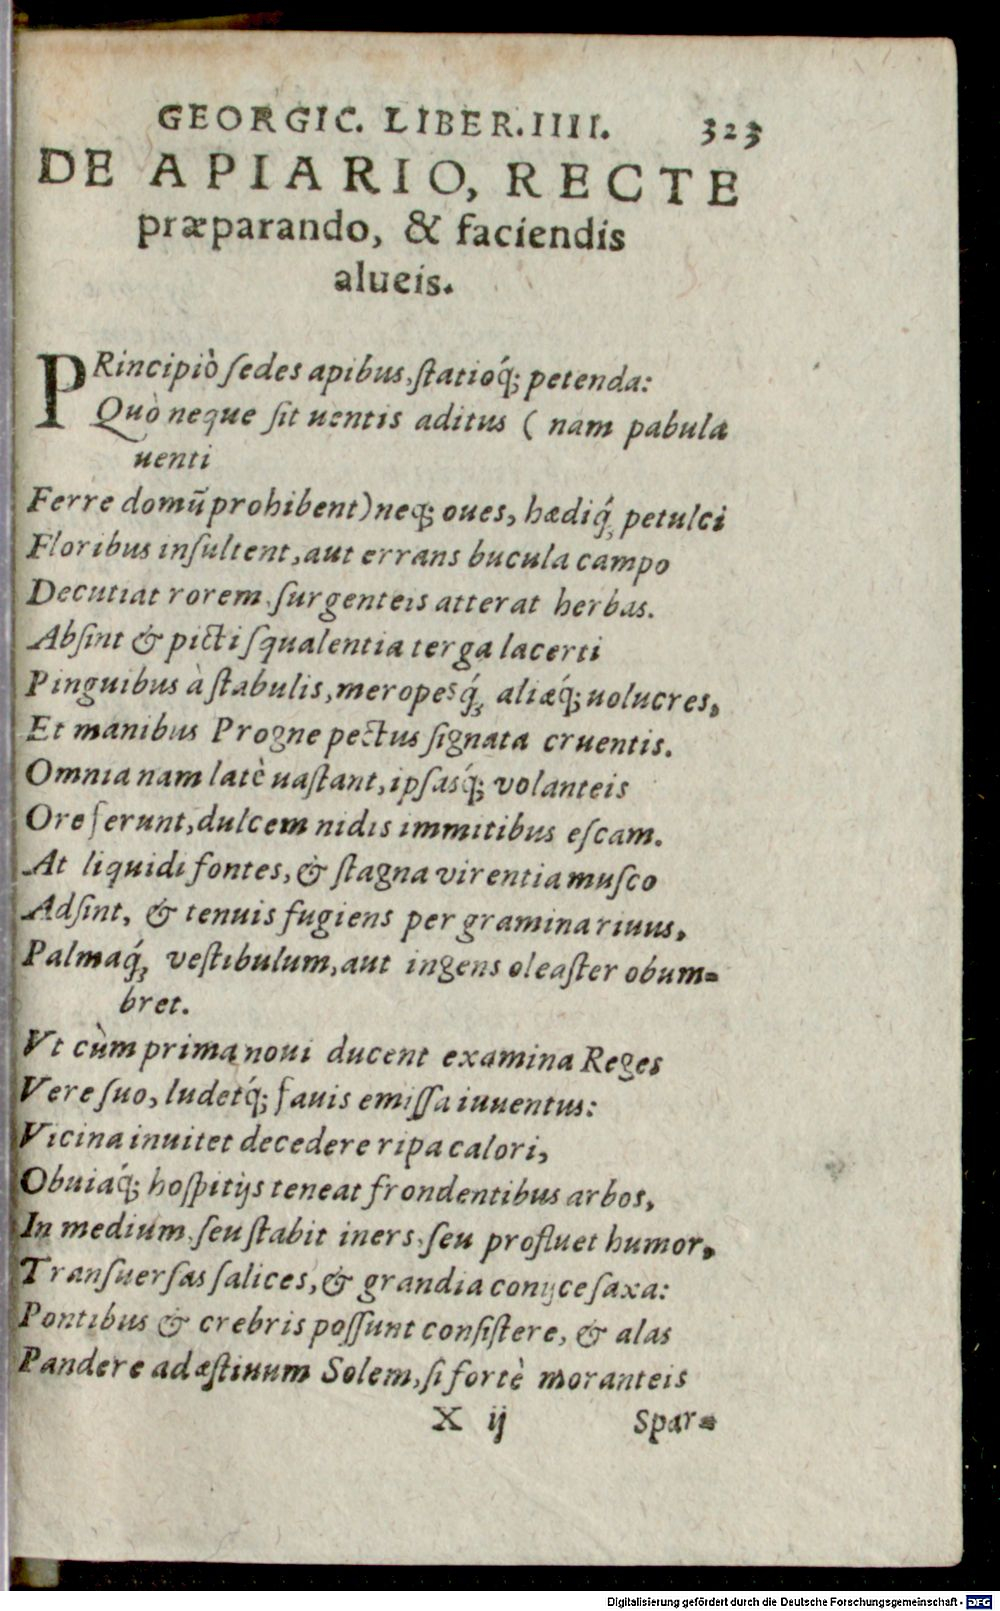 GEORGIC. LIBER. IIII. 323
DE APIARIO, RECTE
præparando, & faciendis
alueis.
PRincipiò ſedes apibus, ſtatioq́; petenda:
Quò neque ſit uentis aditus ( nam pabula
uenti
Ferre domū prohibent) neq; oues, hædiq́; petulci
Floribus inſultent, aut errans bucula campo
Decutiat rorem, ſurgenteis atterat herbas.
Abſint & picti ſqualentia terga lacerti
Pinguibus à ſtabulis, meropesq́; aliæq́; uolucres,
Et manibus Progne pectus ſignata cruentis.
Omnia nam latè uaſtant, ipſasq́; volanteis
Ore ferunt, dulcem nidis immitibus eſcam.
At liquidi fontes, & ſtagna virentia muſco
Adſint, & tenuis fugiens per gramina riuus,
Palmaq́; veſtibulum, aut ingens oleaſter obum-
bret.
Vt cùm prima noui ducent examina Reges
Vere ſuo, ludetq́; fauis emiſſa iuuentus:
Vicina inuitet decedere ripa calori,
Obuiaq́; hoſpitijs teneat frondentibus arbos,
In medium, ſeu ſtabit iners, ſeu profluet humor,
Tranſuerſas ſalices, & grandia conijce ſaxa:
Pontibus & crebris poſſunt conſiſtere, & alas
Pandere ad æſtiuum Solem, ſi fortè moranteis
X ij Spar-
Digitalisierung gefördert durch die Deutsche Forschungsgemeinschaft - DFG